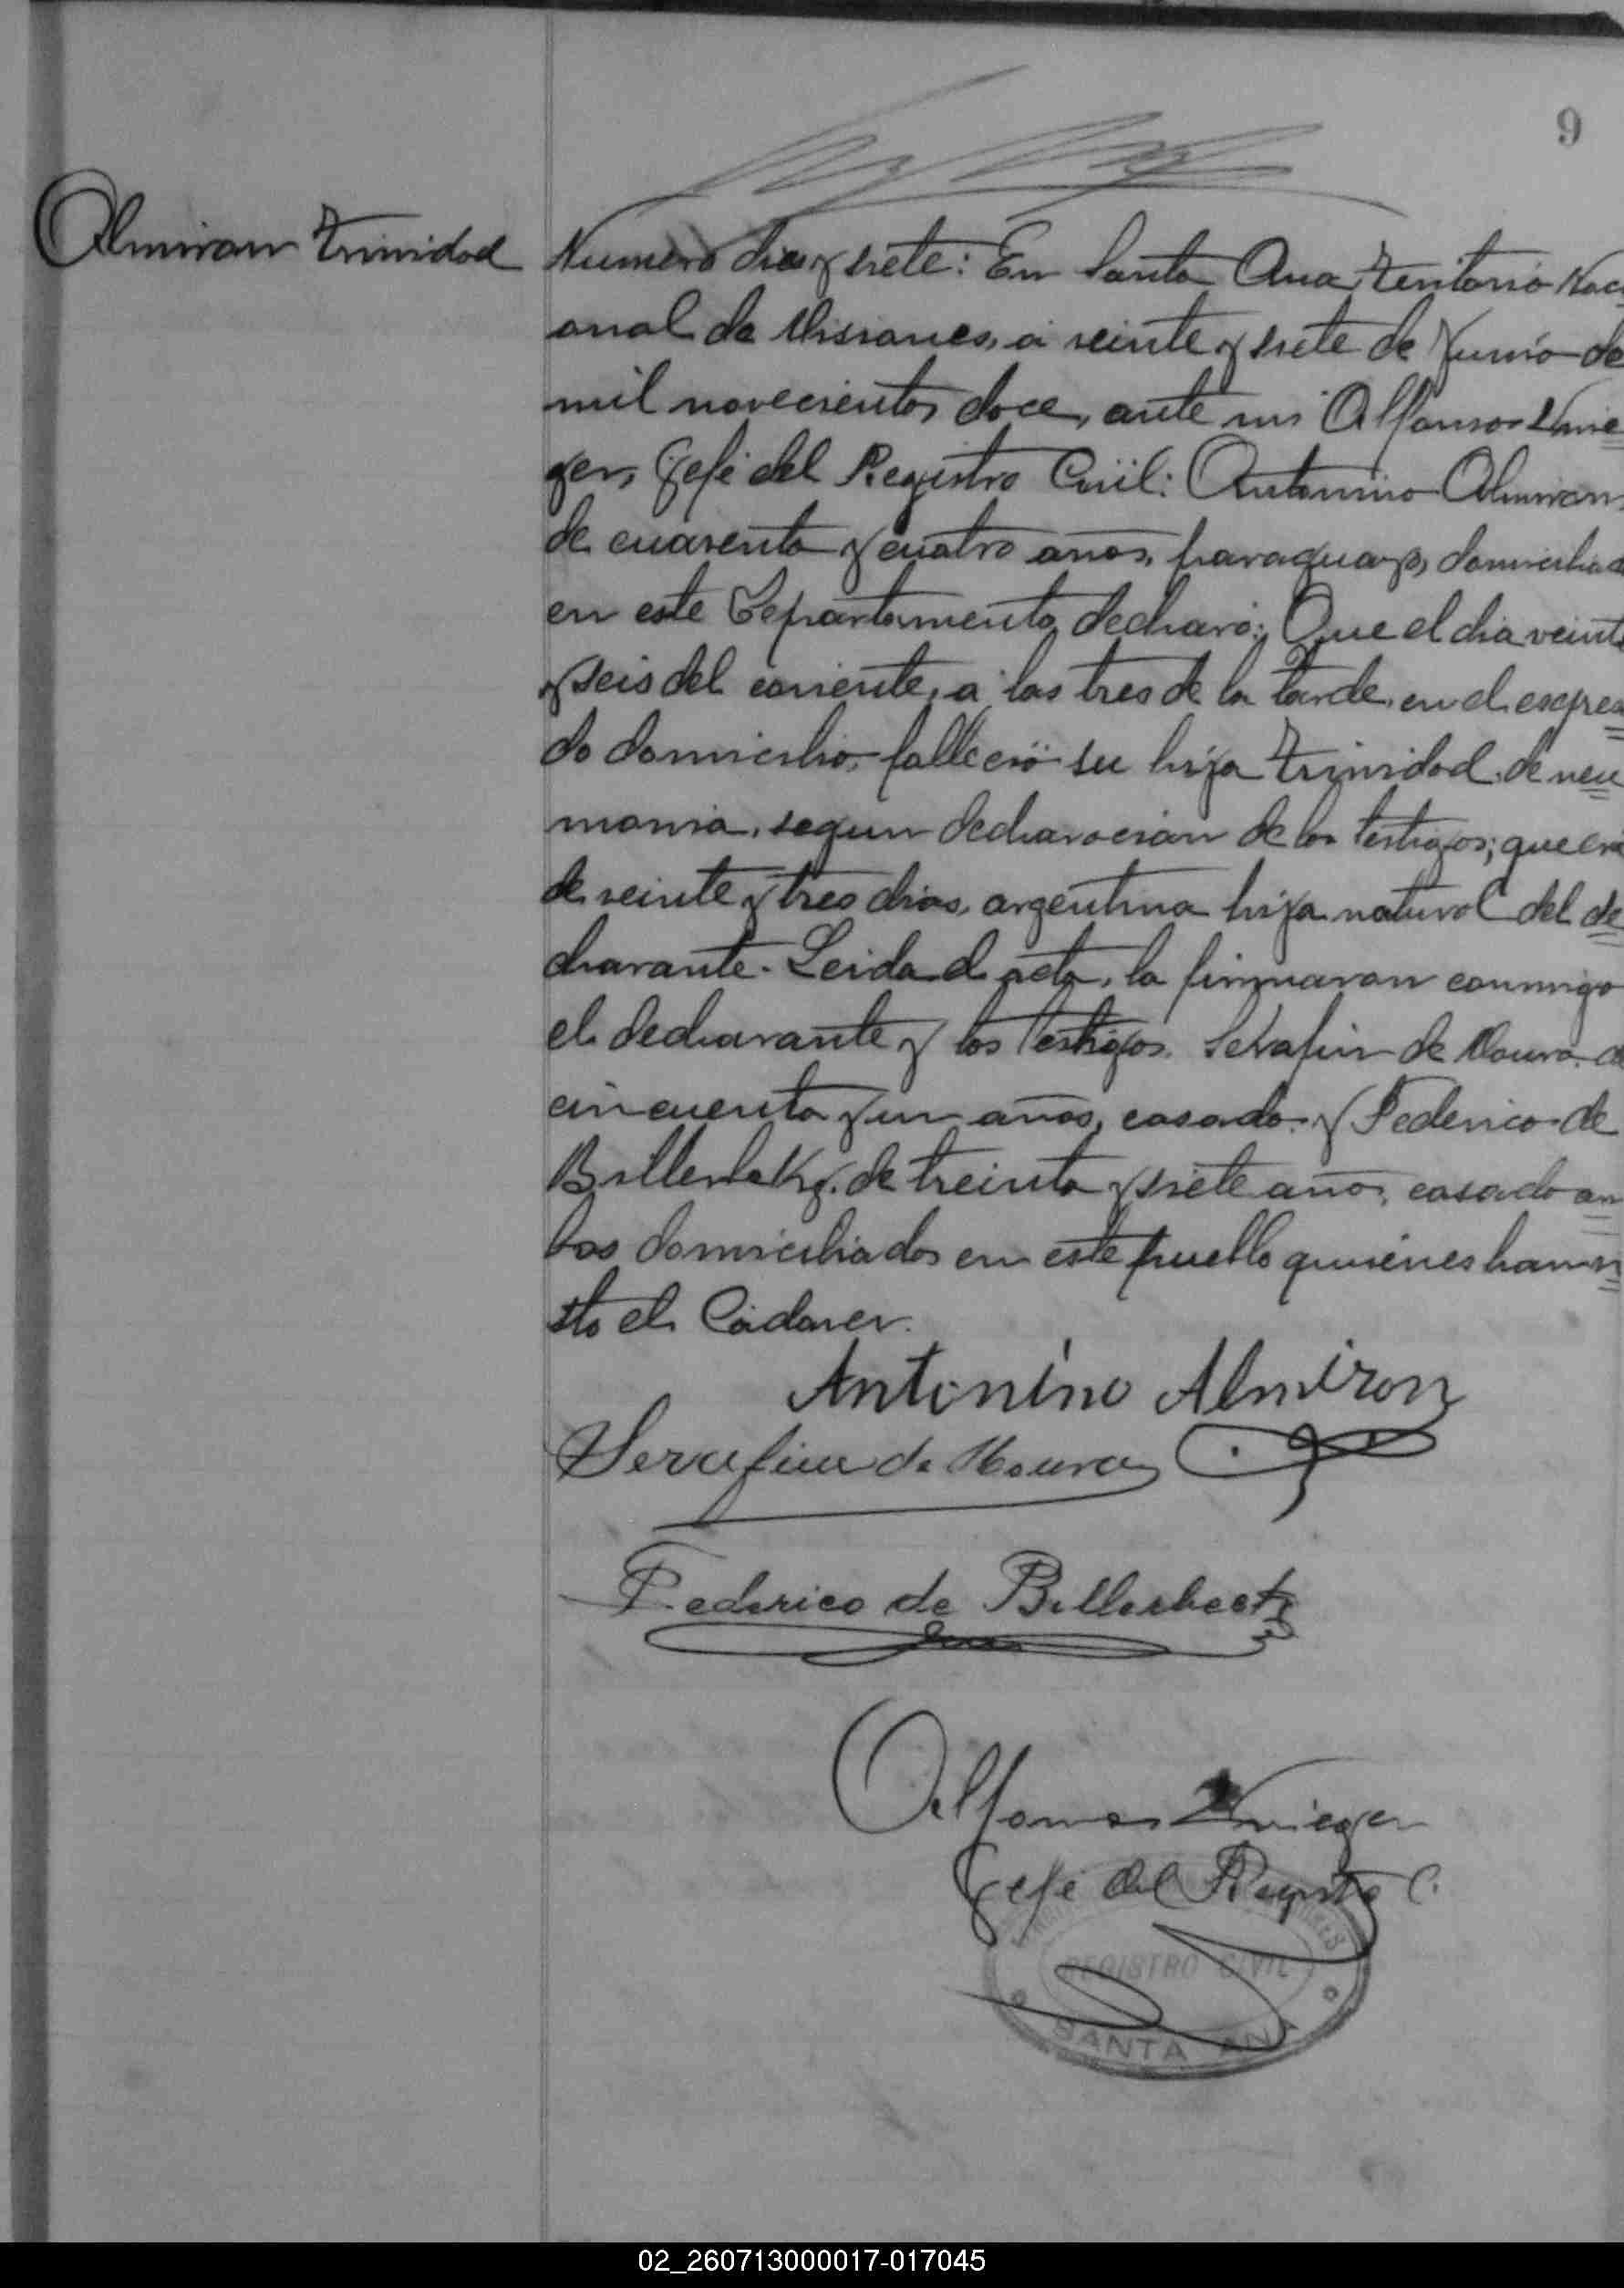 9
Almiron Trinidad
Numero diez y siete: En Santa Ana, Territorio Naci
onal de Misiones, á veinte y siete de Junio de
mil novecientos doce, ante mi Alfonso Krie
ger, Gefe del Registro Civil: Antonino Almiron,
de cuarenta y cuatro años, paraguayo, domiciliado
en este Departamento, declaró: Que el dia veinte
y seis del corriente, a las tres de la tarde, en el espresa
do domicilio, falleció su hija Trinidad, de neu
monia, segun declaracion de los testigos; que era
de veinte y tres dias, argentina hija natural del de
clarante. Leida el acta, la firmaron conmigo
el declarante y los testigos. Serafin de Moura, de
cincuenta y un años, casado y Federico de
Billerbeck, de treinta y siete años, casado am
bos domiciliados en este pueblo quienes han vi
sto el Cádaver.
Antonino Almiron
Serafim de Moura
Federico de Billerbeck
Alfonso Krieger
Gefe del Registro C.
REGISTRO CIVIL
SANTA ANA
02_260713000017-017045